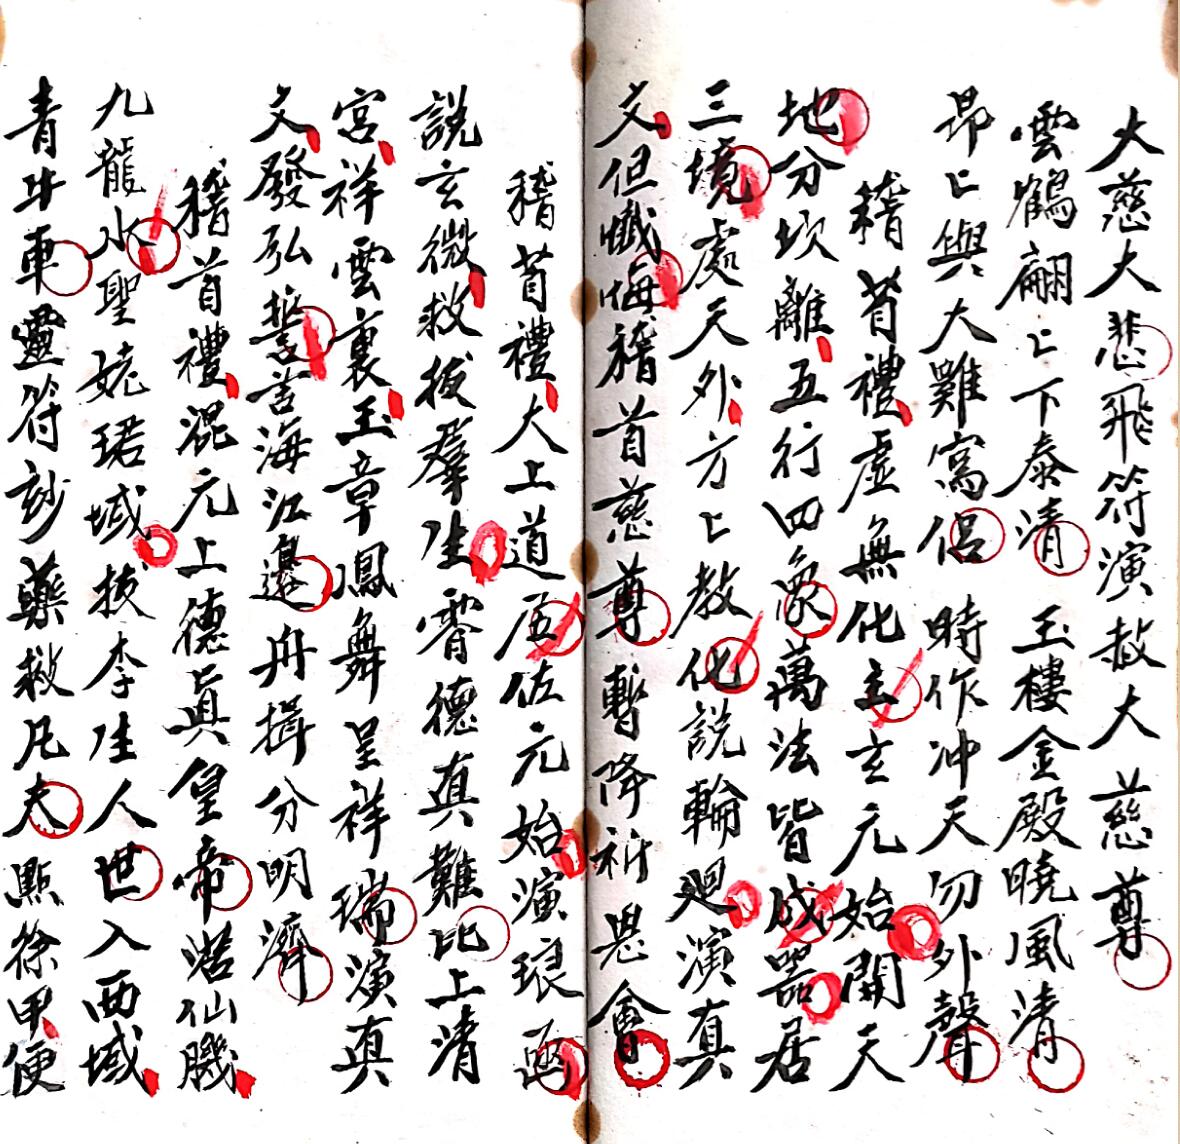 大慈大悲飛符演赦大慈尊
雲鶴翩〻下泰清玉樓金殿曉風清
昂〻與大難窩侶時作冲天勿外聲
稽首禮虛無化主玄元始開天
地分坎離五行四象萬法皆成器居
三境處天外方〻教化說輪迴演真
文但懺悔稽首慈尊暫降祈恩會
稽首禮大上道居佐元始演琅函
說玄微救拔羣生霄德真難比上清
宮祥雲裏玉章鳳舞呈祥瑞演真
文發弘誓苦海江邊舟揖分明濟
稽首禮混元上德真皇帝浩仙職
九龍水聖姥珺域拔李生人世入西域
青牛車靈符妙藥救凡夫點徐甲便